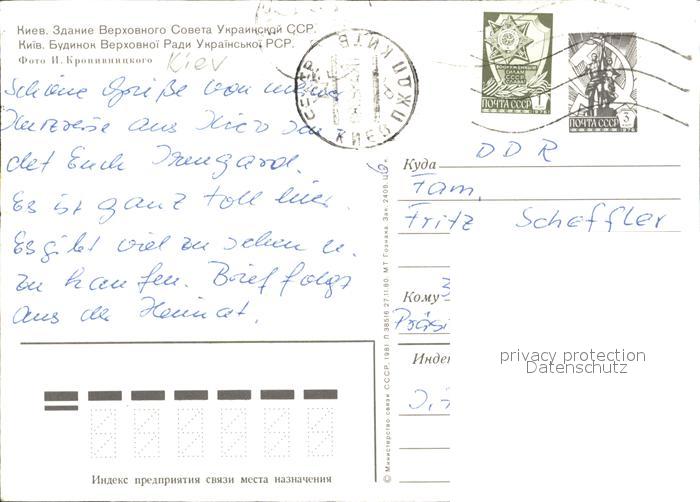 Киев. Здание Верховного Совета Украинской ССР.
Київ. Будинок Верховної Ради Української РСР.
Фото И. Кропивницкого
Kiev
Schöne Grüße von meiner
Kurzreise aus Kiew
det Euch Irmgard.
Es ist ganz toll hier.
Es gibt viel zu sehen u.
zu kaufen. Brief folgt
aus der Heimat.
КИЕВ
ПОЧТА СССР 1
1976
ПОЧТА СССР 3
1976
DDR
Куда
Fam.
Fritz Scheffler
Кому
Индек
privacy protection
Datenschutz
© Министерство связи СССР, 1981
27.11.80. МТ Гознака. Зак.
Индекс предприятия связи места назначения